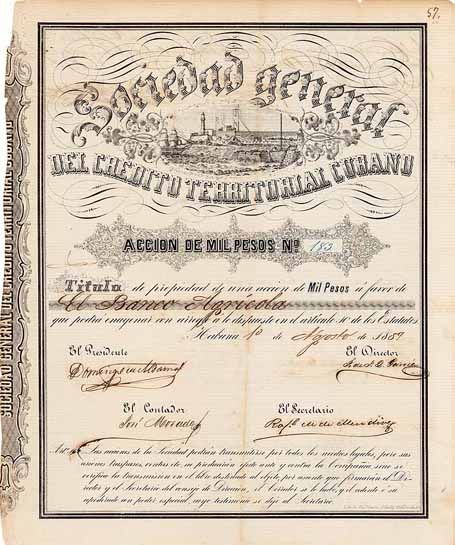 57.
Sociedad general
DEL CREDITO TERRITORIAL CUBANO
ACCION DE MIL PESOS Nº 182
Titulo de propiedad de una accion de Mil Pesos á favor de
El Banco Agricola
que podrá enagenar con arreglo á lo dispuesto en el articulo 10 de los Estatutos.
Habana 1º de Agosto de 1859
El Presidente El Director
Domingo de Aldama
El Contador El Secretario
José Morado
Rafl. M. de Mendive
Las acciones de la Sociedad podrán transmitirse por todos los medios legales, pero sus
uniones traspasos, ventas etc. no producirán efecto ante y contra la Compañia sino se
verifica la transmision en el libro destinado al objeto por asiento que firmarán el Di-
rector y el Secretario del consejo de Direccion, el Corredor si lo hubo, y el cedente ó su
apoderado con poder especial, cuyo testimonio se deje al Secretario.
SOCIEDAD GENERAL DEL CREDITO TERRITORIAL CUBANO